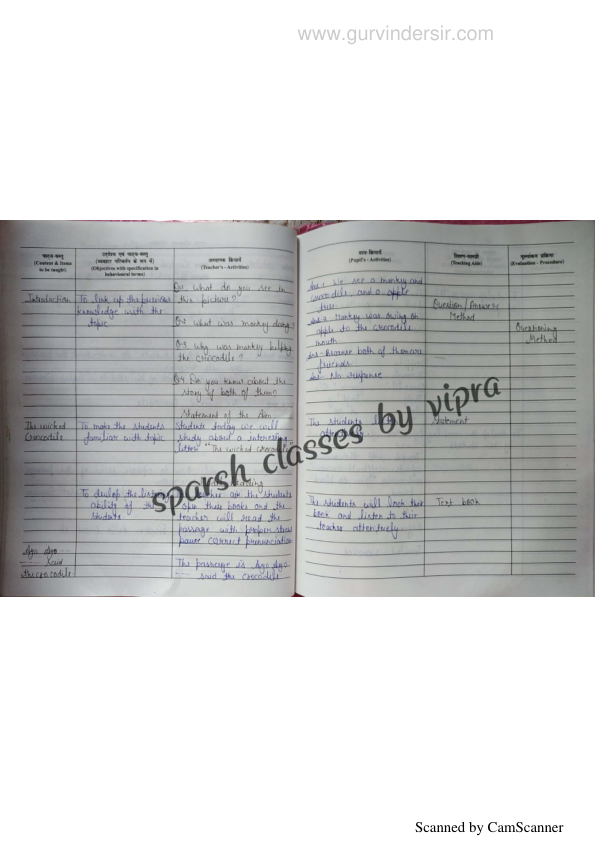 www.gurvindersir.com
पाठ्य-वस्तु
(Content & Items
to be taught)
उद्देश्य एवं पाठ्य-वस्तु
(व्यवहार परिवर्तन के रूप में)
(Objectives with specification in
behavioural terms)
अध्यापक क्रियायें
(Teacher's - Activities)
Introduction
To link up the previous
knowledge with the
topic
Q1 what do you see in
this picture?
Q2 what was monkey doing?
Q3 why was monkey helping
the crocodile?
Q4 Do you know about the
story of both of them?
Statement of the Aim
The wicked
Crocodile
To make the students
familiar with topic
Students today we will
study about a interesting
"The wicked crocodile"
To devlop the
ability of the
students
ask the students
open their books and the
teacher will read the
passage with proper
pause correct pronunciation
Ago Ago
said
the crocodile
The passage is Ago Ago
said the crocodile
छात्र-क्रियायें
(Pupil's - Activities)
शिक्षण-सामग्री
(Teaching Aids)
मूल्यांकन प्रक्रिया
(Evaluation - Procedure)
Ans 1 We see a monkey and
crocodile and a apple
tree
Ans 2 Monkey was
apple to the crocodile
mouth
Ans- Because both of them are
friends
Ans- No response
Question/Answer
Method
Questioning
Method
The students
Statement
The students will
book and listen to their
teacher attentively
Text book
sparsh classes by vipra
Scanned by CamScanner